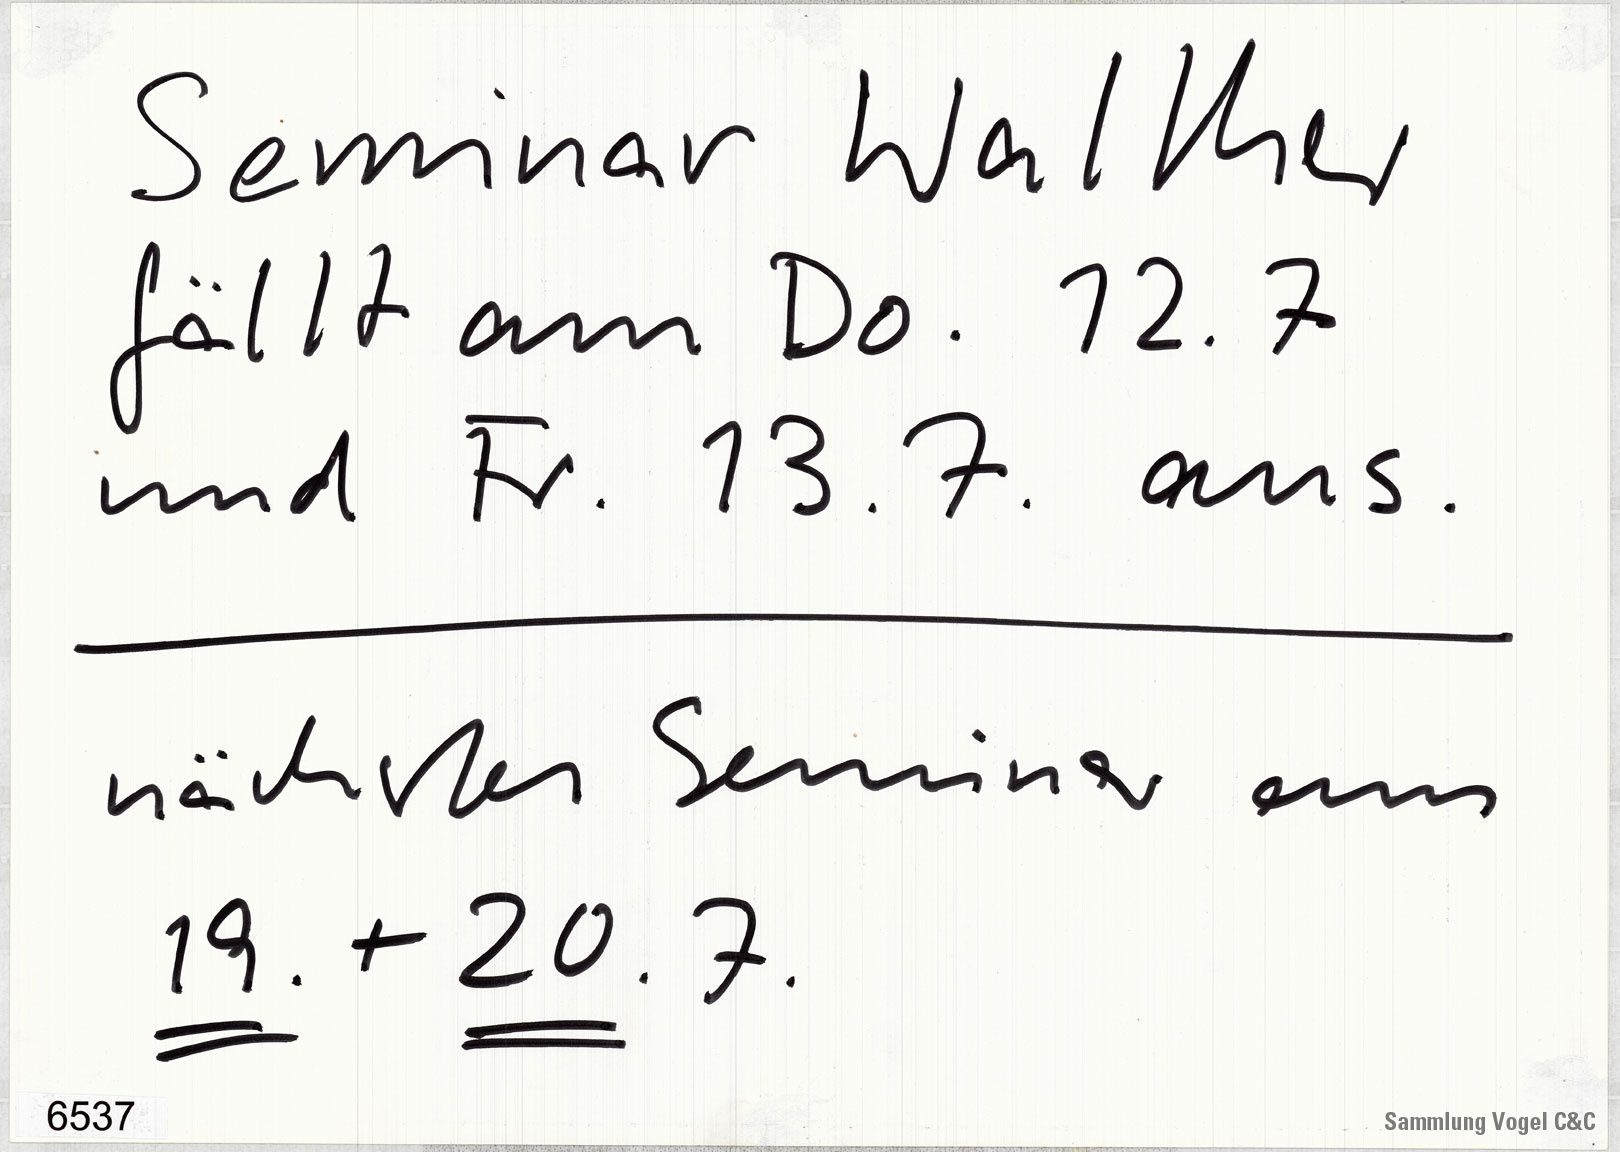 Seminar Walther
fällt am Do. 12.7
und Fr. 13.7. aus.
nächstes Seminar am
19. + 20.7.
6537
Sammlung Vogel C&C